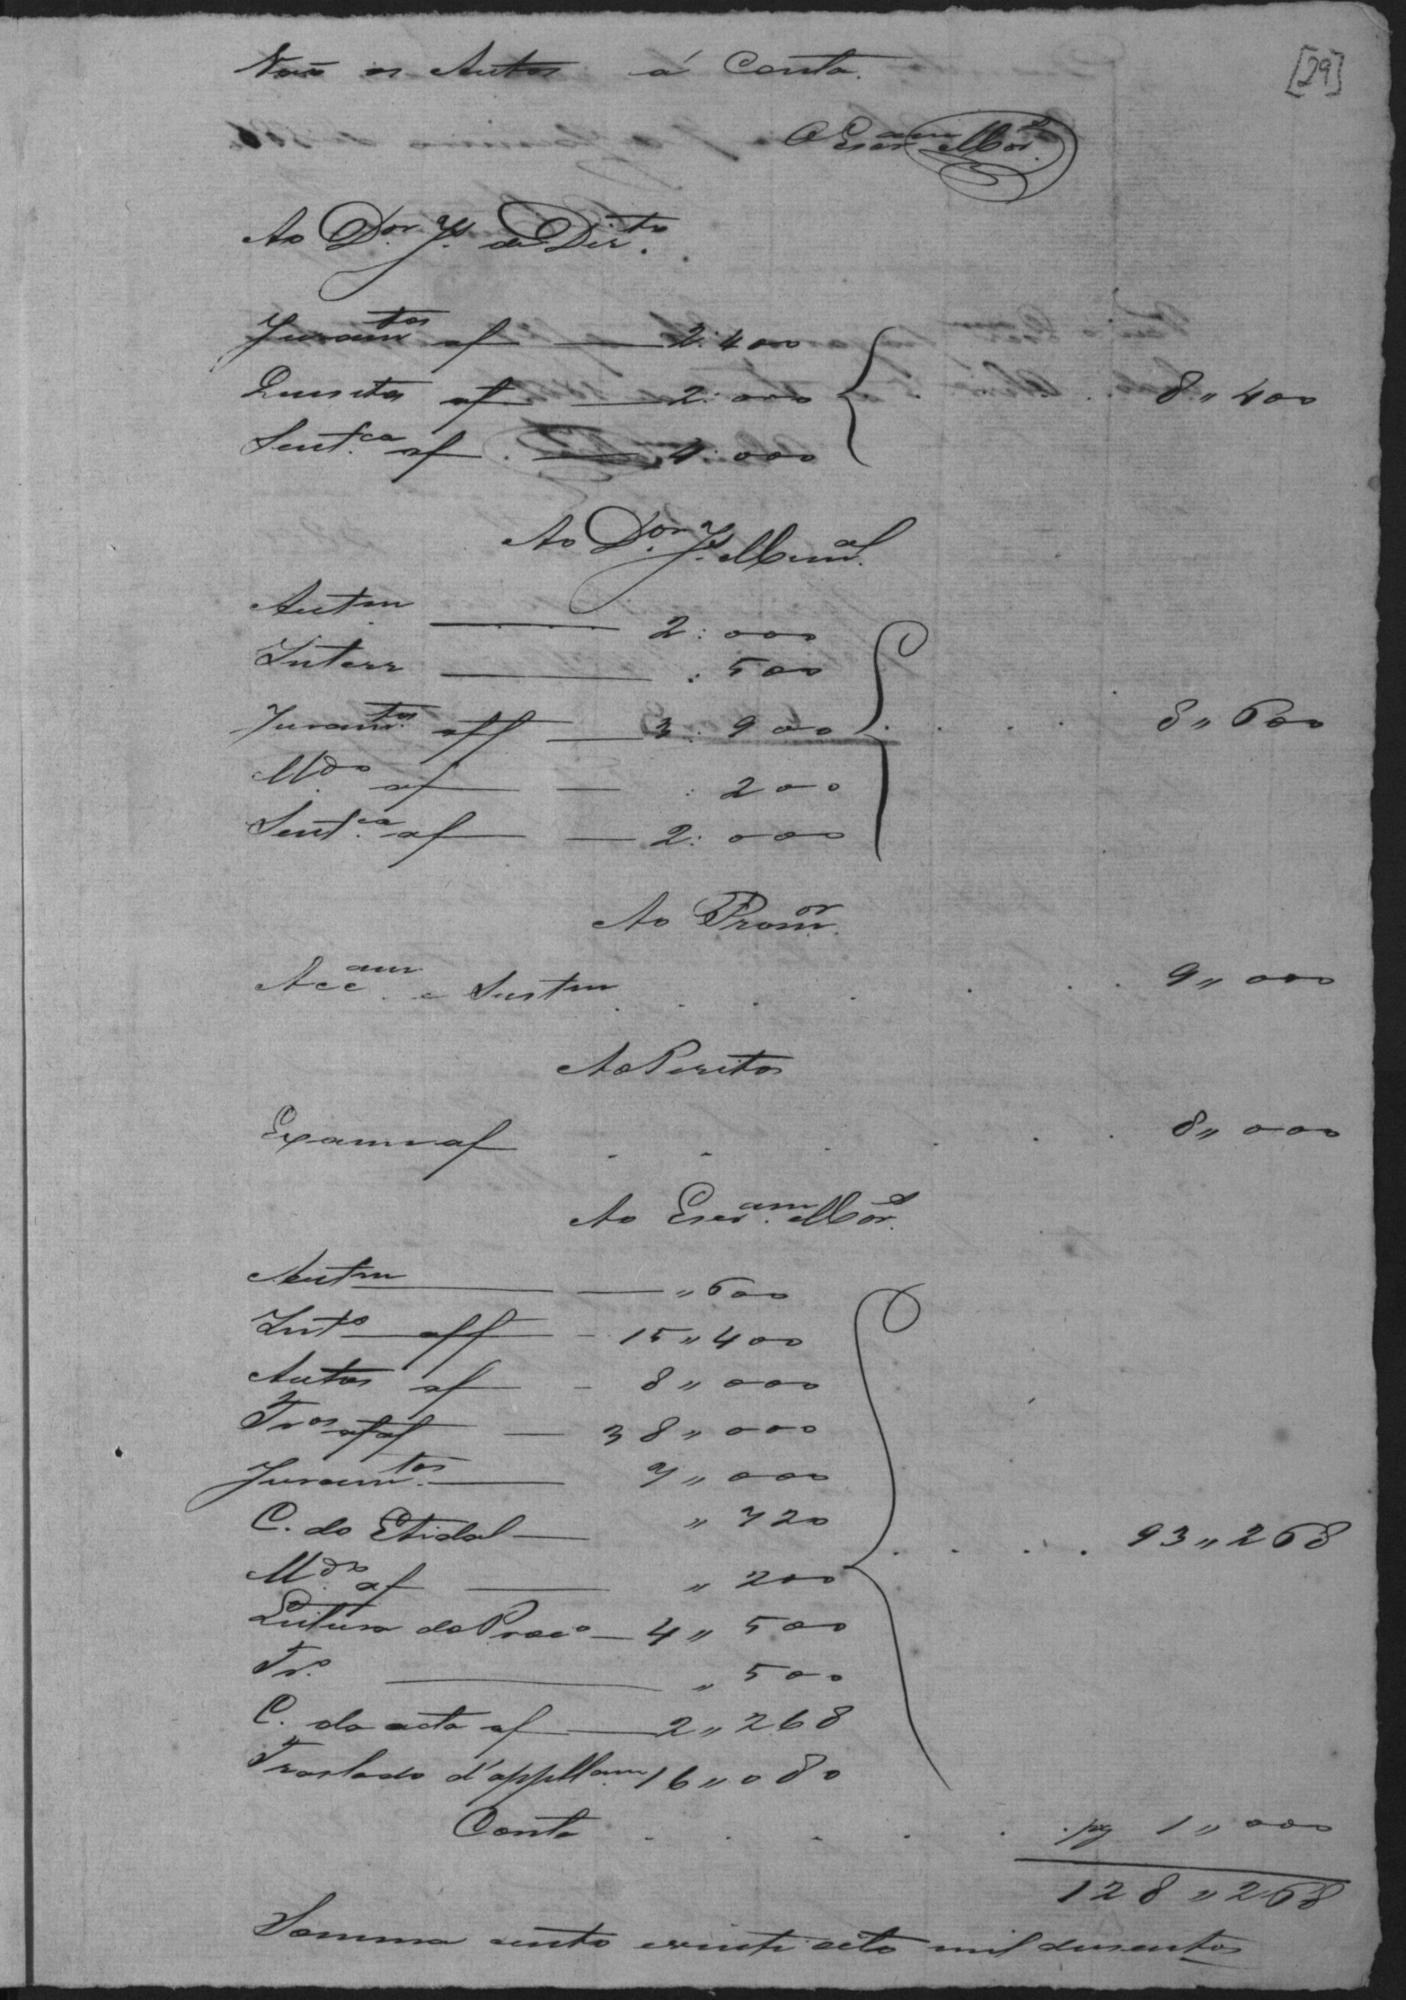 Vão os Autos á Conta.
[29]
O Escr.am Mor.es
Ao D.or J.s de Dir.to
Juram.tos af — 2:400
Quesitos af — 2:000 . . 8,,400
Sent.ca af — 4:000
Ao D.or J.s Mun.al
Autm — 2:000
Interr — :500
Juram.tos aff — 3:900 . . . . 8,,600
M.do af — :200
Sent.ca af — 2:000
Ao Prom.or
Acc.am e Sustm . . . . . 9,,000
Ao Peritos
Exame af . . . . . . 8,,000
Ao Escr.am Mor.es
Autm — ,,600
Int.o aff — 15,,400
Autos af — 8,,000
Tr.os afaf — 38,,000
Juram.tos — 7,,000
C. do Edital — ,,720
M.do af — ,,200 . . . . 93,,268
Leitura do Proc.o — 4,,500
Tr.o — ,,500
C. da acta af — 2,,268
Traslado d'appellam 16,,080
Conta . . . . . pg 1,,000
128,,268
Somma cento e vinte oito mil dusentos